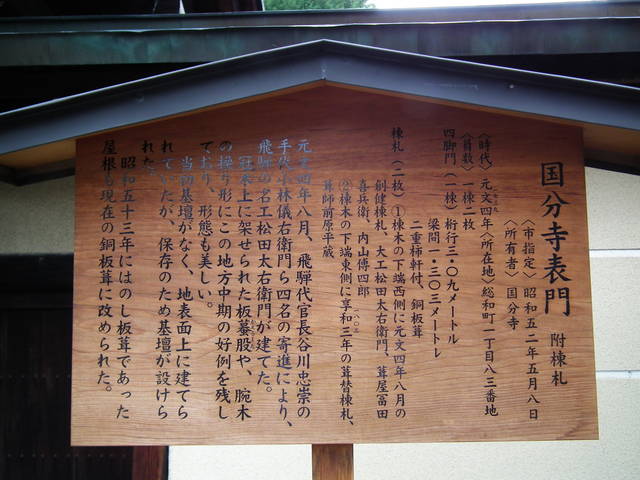 国分寺表門 附棟札
〈市指定〉昭和五二年五月八日
〈所有者〉国分寺
〈時代〉元文四年〈所在地〉総和町一丁目八三番地
〈員数〉一棟二枚
四脚門(一棟)桁行三・〇九メートル
梁間三・三〇三メートレ
二重棰軒付、銅板葺
棟札(二枚)①棟木の下端西側に元文四年八月の
創健棟札、大工松田太右衛門、葺屋冨田
喜兵衛、内山傳四郎
②棟木の下端東側に享和三年の葺替棟札、
葺師前原平蔵
元文四年八月、飛騨代官長谷川忠崇の
手代小林儀右衛門ら四名の寄進により、
飛騨の名工松田太右衛門が建てた。
冠木上に架せられた板蟇股や、腕木
の操り形にこの地方中期の好例を残し
ており、形態も美しい。
当初基壇がなく、地表面上に建てら
れていたが、保存のため基壇が設けら
れた。
昭和五十三年にはのし板葺であった
屋根も現在の銅板葺に改められた。